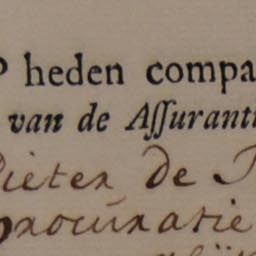 P heden compa
van de Aſſuranti
Pieter de P
procúratie